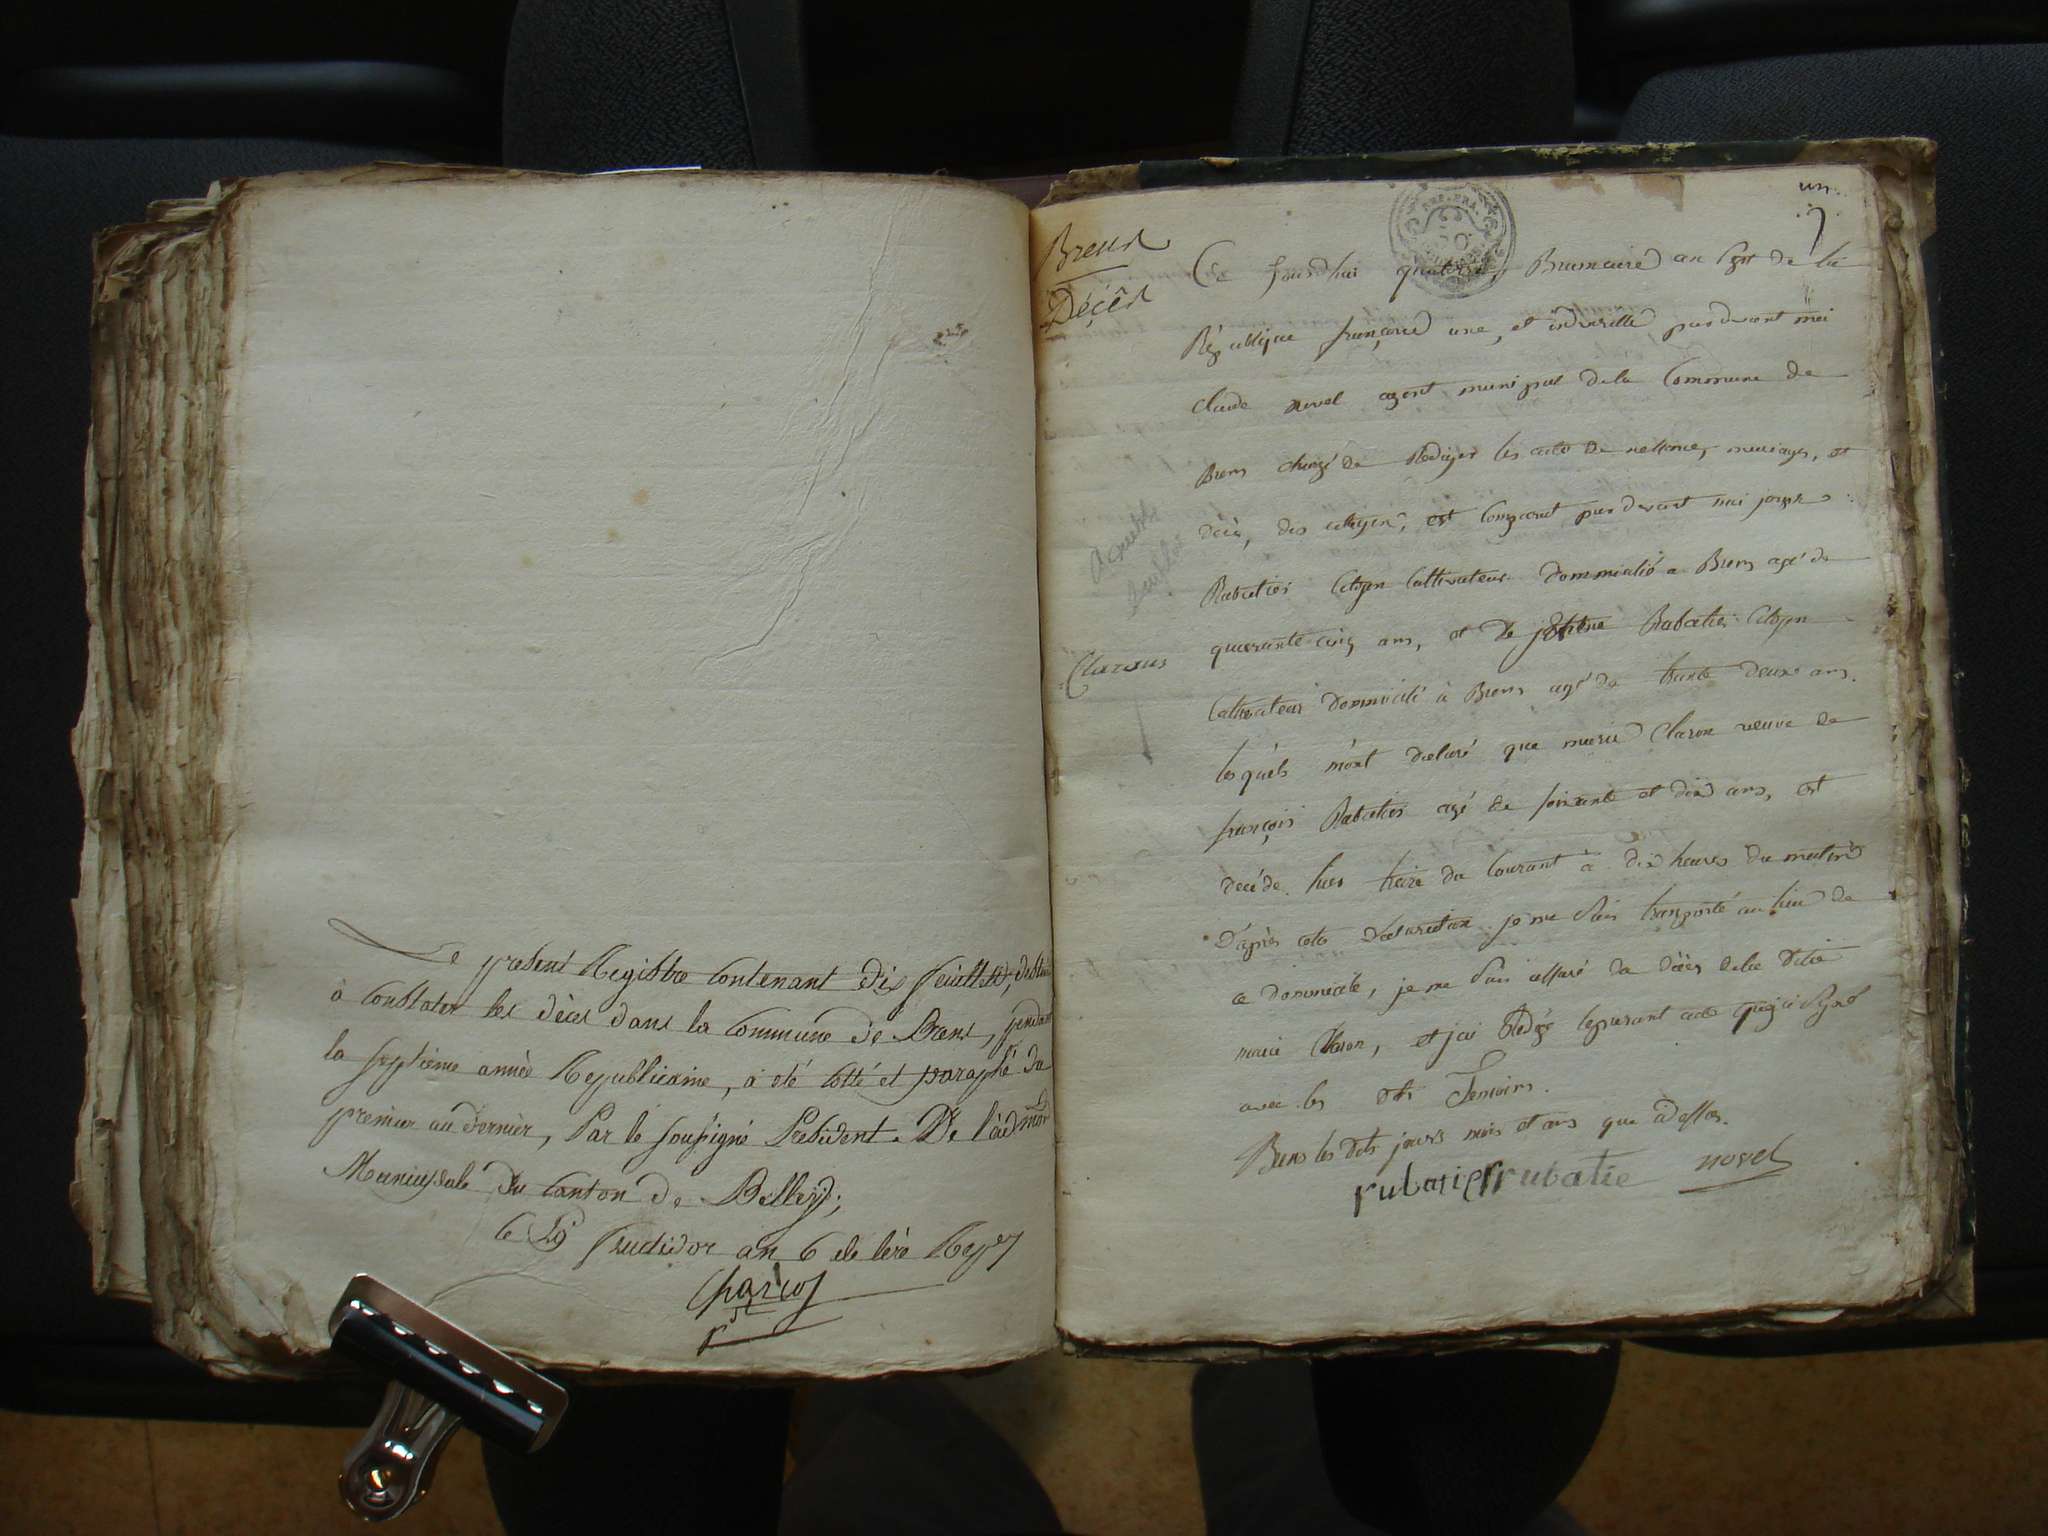 Le present Registre contenant dix feuillets, destiné
à constater les décès dans la commune de Brens, pendant
la septième année Republicaine, a été cotté et paraphé du
premier au dernier, Par le soussigné President De l'adm̃on
Municipale Du Canton de Belley;
le 29 fructidor an 6 de l'ère Rep.
pst
un
7
REP. FRA.
Brens
Décès
Ce jourdhui quatorze Brumaire an sept de la
République françoise une, et indivisible pardevant moi
Claude novel agent municipal dela Commune de
Brens chargé de Rediger les actes de nessence, mariages, et
décès, des citoyens, est Comparut pardevant moi joseph
Rabatier Citoyen Cultivateur Dommicilié a Brens agé de
quarante cinq ans, et De Rabatier Citoyen
Claron
Cultivateur Dommicilié à Brens agé de trante deux ans.
lesquels m'ont declaré que marie Claron veuve de
françois Rabatier agé de soixante et dix ans, est
decédé hier treize du Courant à dix heures du matin
D'après cete Déclaration je me suis transporté au lieu de
ce dommicile, je me suis assuré du décès dela Dite
marie Claron, et jai Rédigé lepresant acte que jai signé
avec les dts Temoins.
Brens les dits jours mois et ans que dessus.
rubatier rubatie novel